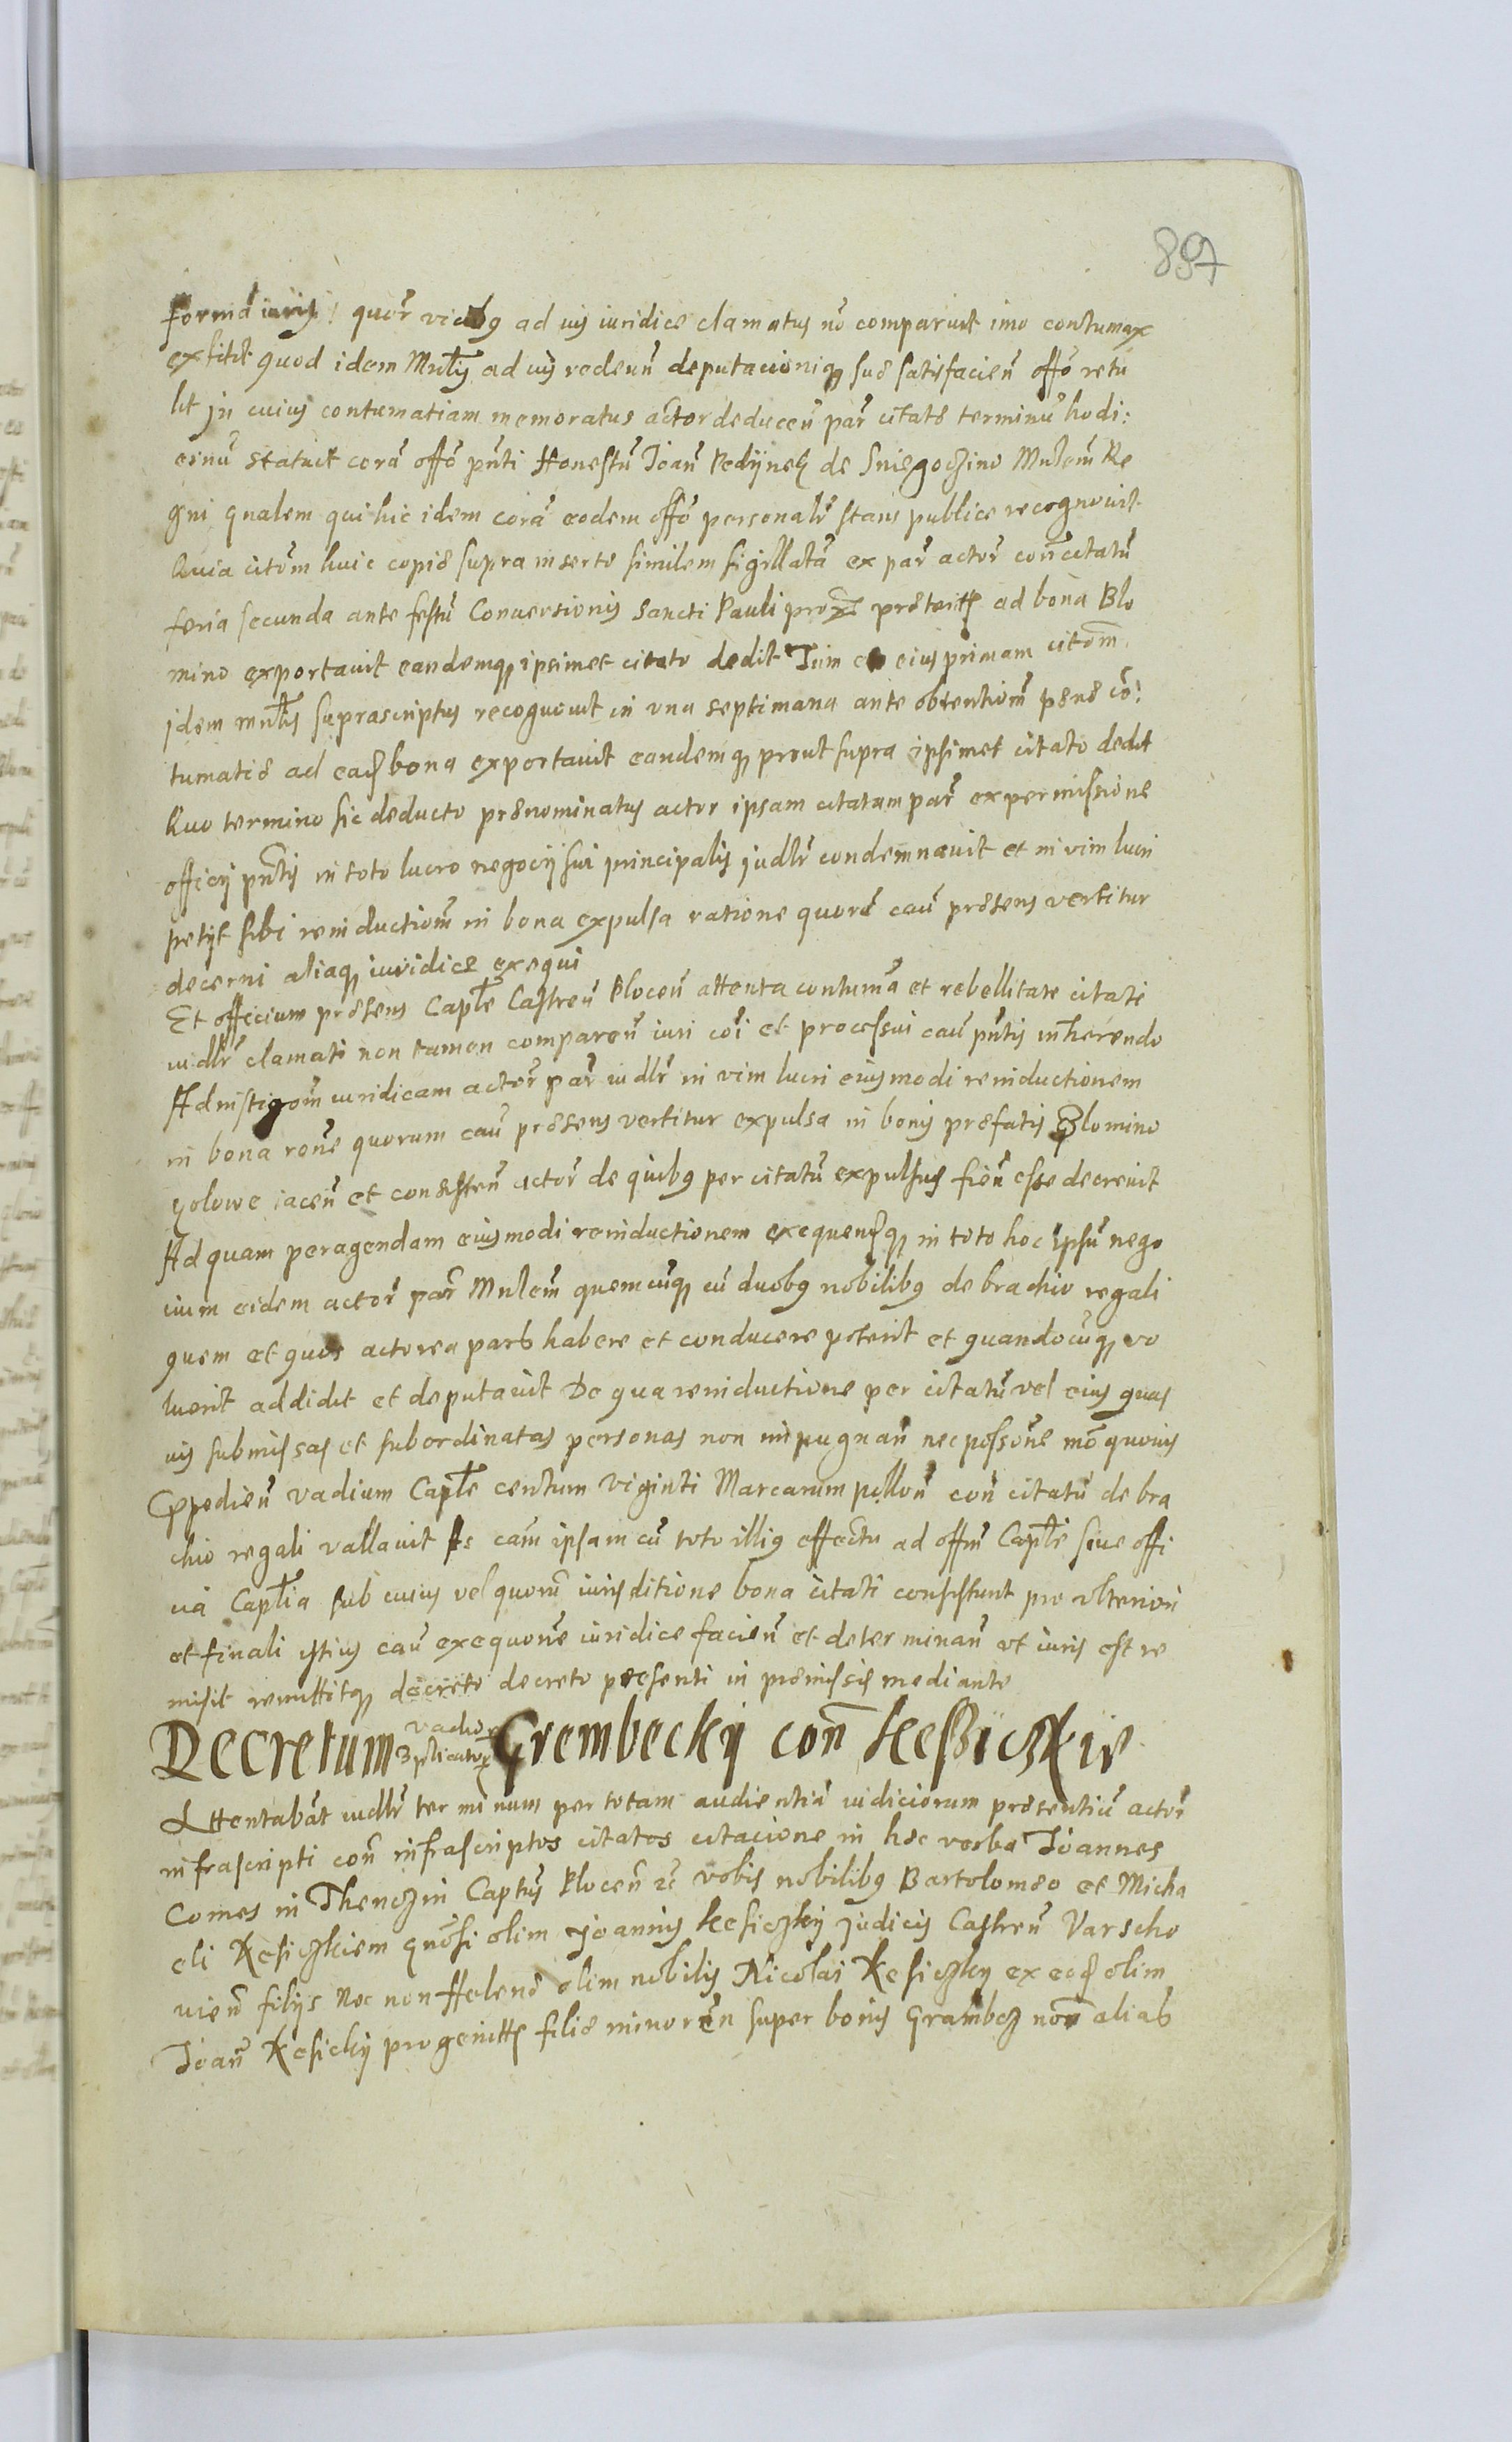 897
forma iuris quor̄ vicibꝫ ad ius iuridice clamatus nō comparuit imo contumax
extitit quod idem Mnlis̄ ad ius redeun̄ deputacioniqꝫ sue satisfacien̄ offō retu
lit In cuius contumatiam memoratus actor deducen̄ par̄ citate terminū hodi:
ernū statuit corā offō pn̄ti Honestū Joan̄ de Sniegoczino Mnlem̄ Re
gni gnalem qui hic idem corā eodem offō personalr̄ stans publice recognouit
Quia citōm huic copie supra inserte similem sigillatā ex par̄ actor̄ con̄ citatū
feria secunda ante festū Conuersionis Sancti Pauli prox̄ preterit ad bona Blo
mino exportauit eandemqꝫ ipsimet citato dedit Tum et eius primam citōm̄
Idem mnlis̄ suprascriptus recognouit in vna septimana ante obtentiōm̄ pene cō:
tumatie ad ead bona exportauit eandemqꝫ prout supra ipsimet citato dedit
Quo termino sic deducto prenominatus actor ipsam citatam par̄ ex permissione
officij pn̄tis in toto lucro negocij sui principalis Judlr̄ condemnauit et in vim lucri
petijt sibi reinductiōm̄ in bona expulsa ratione quorū cau̅ presens vertitur
decerni aliaqꝫ iuridice exequi
Et officium presens Capt̄le Castren̄ Plocen̄ attenta contumā et rebellitate citati
iudlr̄ clamati non tamen comparen̄ iuri cōi et processui cau̅ pn̄tis inherendo
Ad instigōm̄ iuridicam actor̄ par̄ iudlr̄ in vim lucri eiusmodi reinductionem
in bona rōne quorum cau̅ presens vertitur expulsa in bonis prefatis Blomino
golowe iacen̄ et consisten̄ actor̄ de quibꝫ per citatū expulsus fien̄ esse decreuit
Ad quam peragendam eiusmodi reinductionem exequendqꝫ in toto hoc ipsū nego
cium eidem actor̄ par̄ Mnlem̄ quemcūqꝫ cū duobꝫ nobilibꝫ de brachio regali
quem et quos actorea pars habere et conducere poterit et quandocūqꝫ vo
luerit addidit et deputauit De qua reinductione per citatū vel eius quas
uis submissas et subordinatas personas non impugnan̄ nec possōne mō quouis
Expedien̄ vadium Capt̄le centum viginti Marcarum pollon̄ con̄ citatū de bra
chio regali vallauit Ac cam̄ ipsam cū toto illiꝫ effectu ad offm̄ Capt̄le siue offi
cia Capt̄lia sub cuius vel quorū iurisditione bona citati consistunt pro vlteriori
et finali istius cau̅ exequōne iuridice facien̄ et determinan̄ vt iuris est re
misit remittitqꝫ decreto decreto presenti in premissis mediante
Decretum vadior Grembecky con̄ Kessiczkie
Attentabāt iudlr̄ terminum per totam audientiā iudiciorum presentiū actor̄
infrascripti con̄ infrascriptos citatos citacione in hec verba Joannes
Comes in Thenczin Captūs Plocen̄ zc̄ vobis nobilibꝫ Bartolomeo et Micha
eli Kesiczkiem gnōsi olim Joannis Kesiczky Judicis Castren̄ Varscho
uien̄ filijs Nec non Helene olim nobilis Nicolai Kesiczky ex eod olim
Joan̄ Kesicky progenitt filie minoren̄ super bonis Grambcz non̄ alias